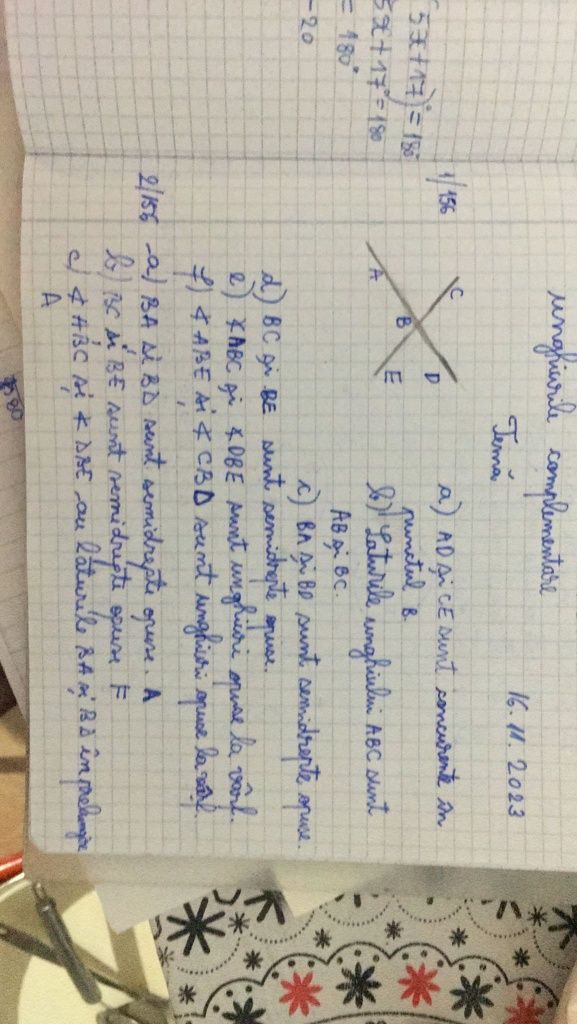 5x+17)° = 180°
5x+17° = 180
= 180°
-20
unghiurile complementare
16.11.2023
Temă
1/156
C
A
B
D
E
a) AD și CE sunt concurente în
punctul B.
b) Laturile unghiului ABC sunt
AB și BC.
c) BA și BD sunt semidrepte opuse.
d) BC și BE sunt semidrepte opuse.
e) ∢ABC și ∢DBE sunt unghiuri opuse la vârf.
f) ∢ABE și ∢CBD sunt unghiuri opuse la vârf.
2/156 a) BA și BD sunt semidrepte opuse. A
b) BC și BE sunt semidrepte opuse F
c) ∢ABC și ∢DBE au laturile BA și BD în
A